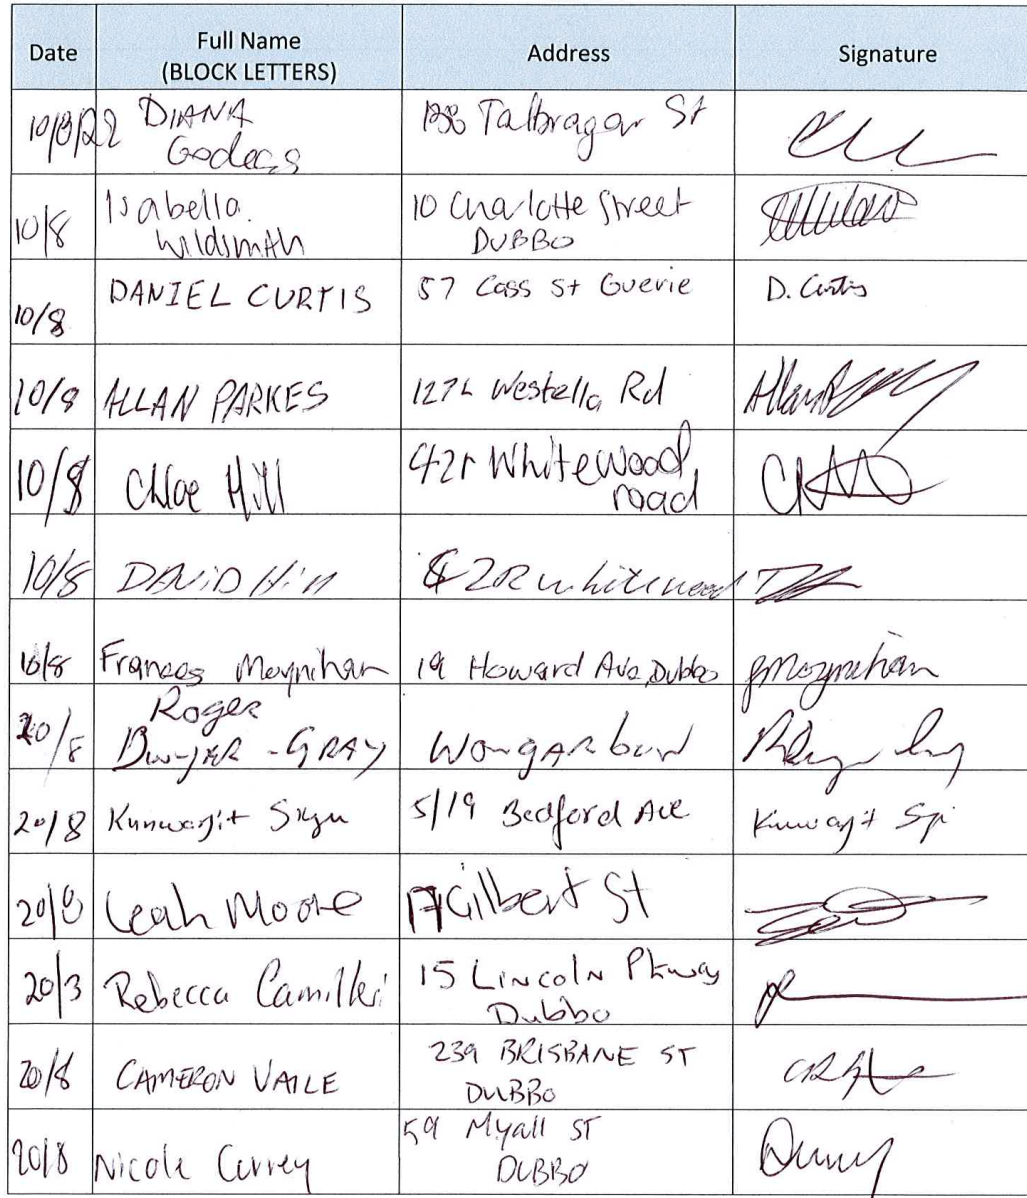 Date Full Name Address Signature
(BLOCK LETTERS)
10/8/22 DIANA 138 Talbragar St
10/8 Isabella 10 Charlotte Street
Wildsmith DUBBO
10/8 DANIEL CURTIS 57 Cass St Guerie D. Curtis
10/8 ALLAN PARKES Westella Rd Allan
10/8 Chloe Hill 42r Whitewood
road
10/8 DAVID Hill 42R whitewood
10/8 Frances Moynihan 19 Howard Ave, Dubbo fmoynihan
Roger
20/8 Dwyer-GRAY WONGARbon
20/8 Kunwarjit 5/19 Bedford Ave Kunwarjit
20/8 Leah Moore 17 Gilbert St
Rebecca Camilleri 15 LINCOLN Pkway
Dubbo
20/8 CAMERON VAILE 239 BRISBANE ST
DUBBO
20/8 Nicole Currey 59 Myall ST
DUBBO